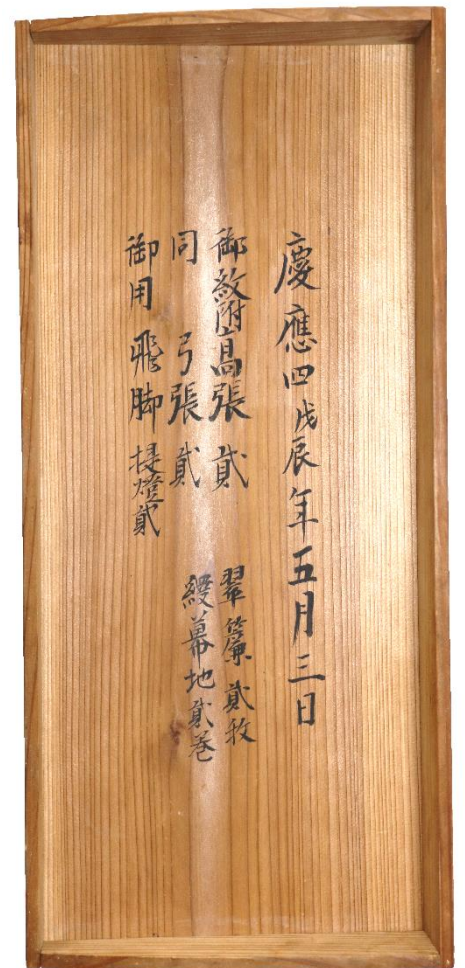 慶應四戊辰年五月三日
御紋附高張 貳
同 弓張 貳
御用 飛脚 提燈貳
翠簾 貳枚
縵幕地貳巻